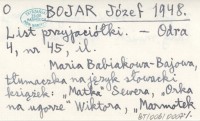 O BOJAR Józef 1948.
List przyjaciółki. — Odra
4, nr 45, il.
Maria Babiakowa-Bojowa,
tłumaczka na język słowacki
książek: „Matka" Sewera, „Orka
na ugorze" Wiktora, „Marmotek